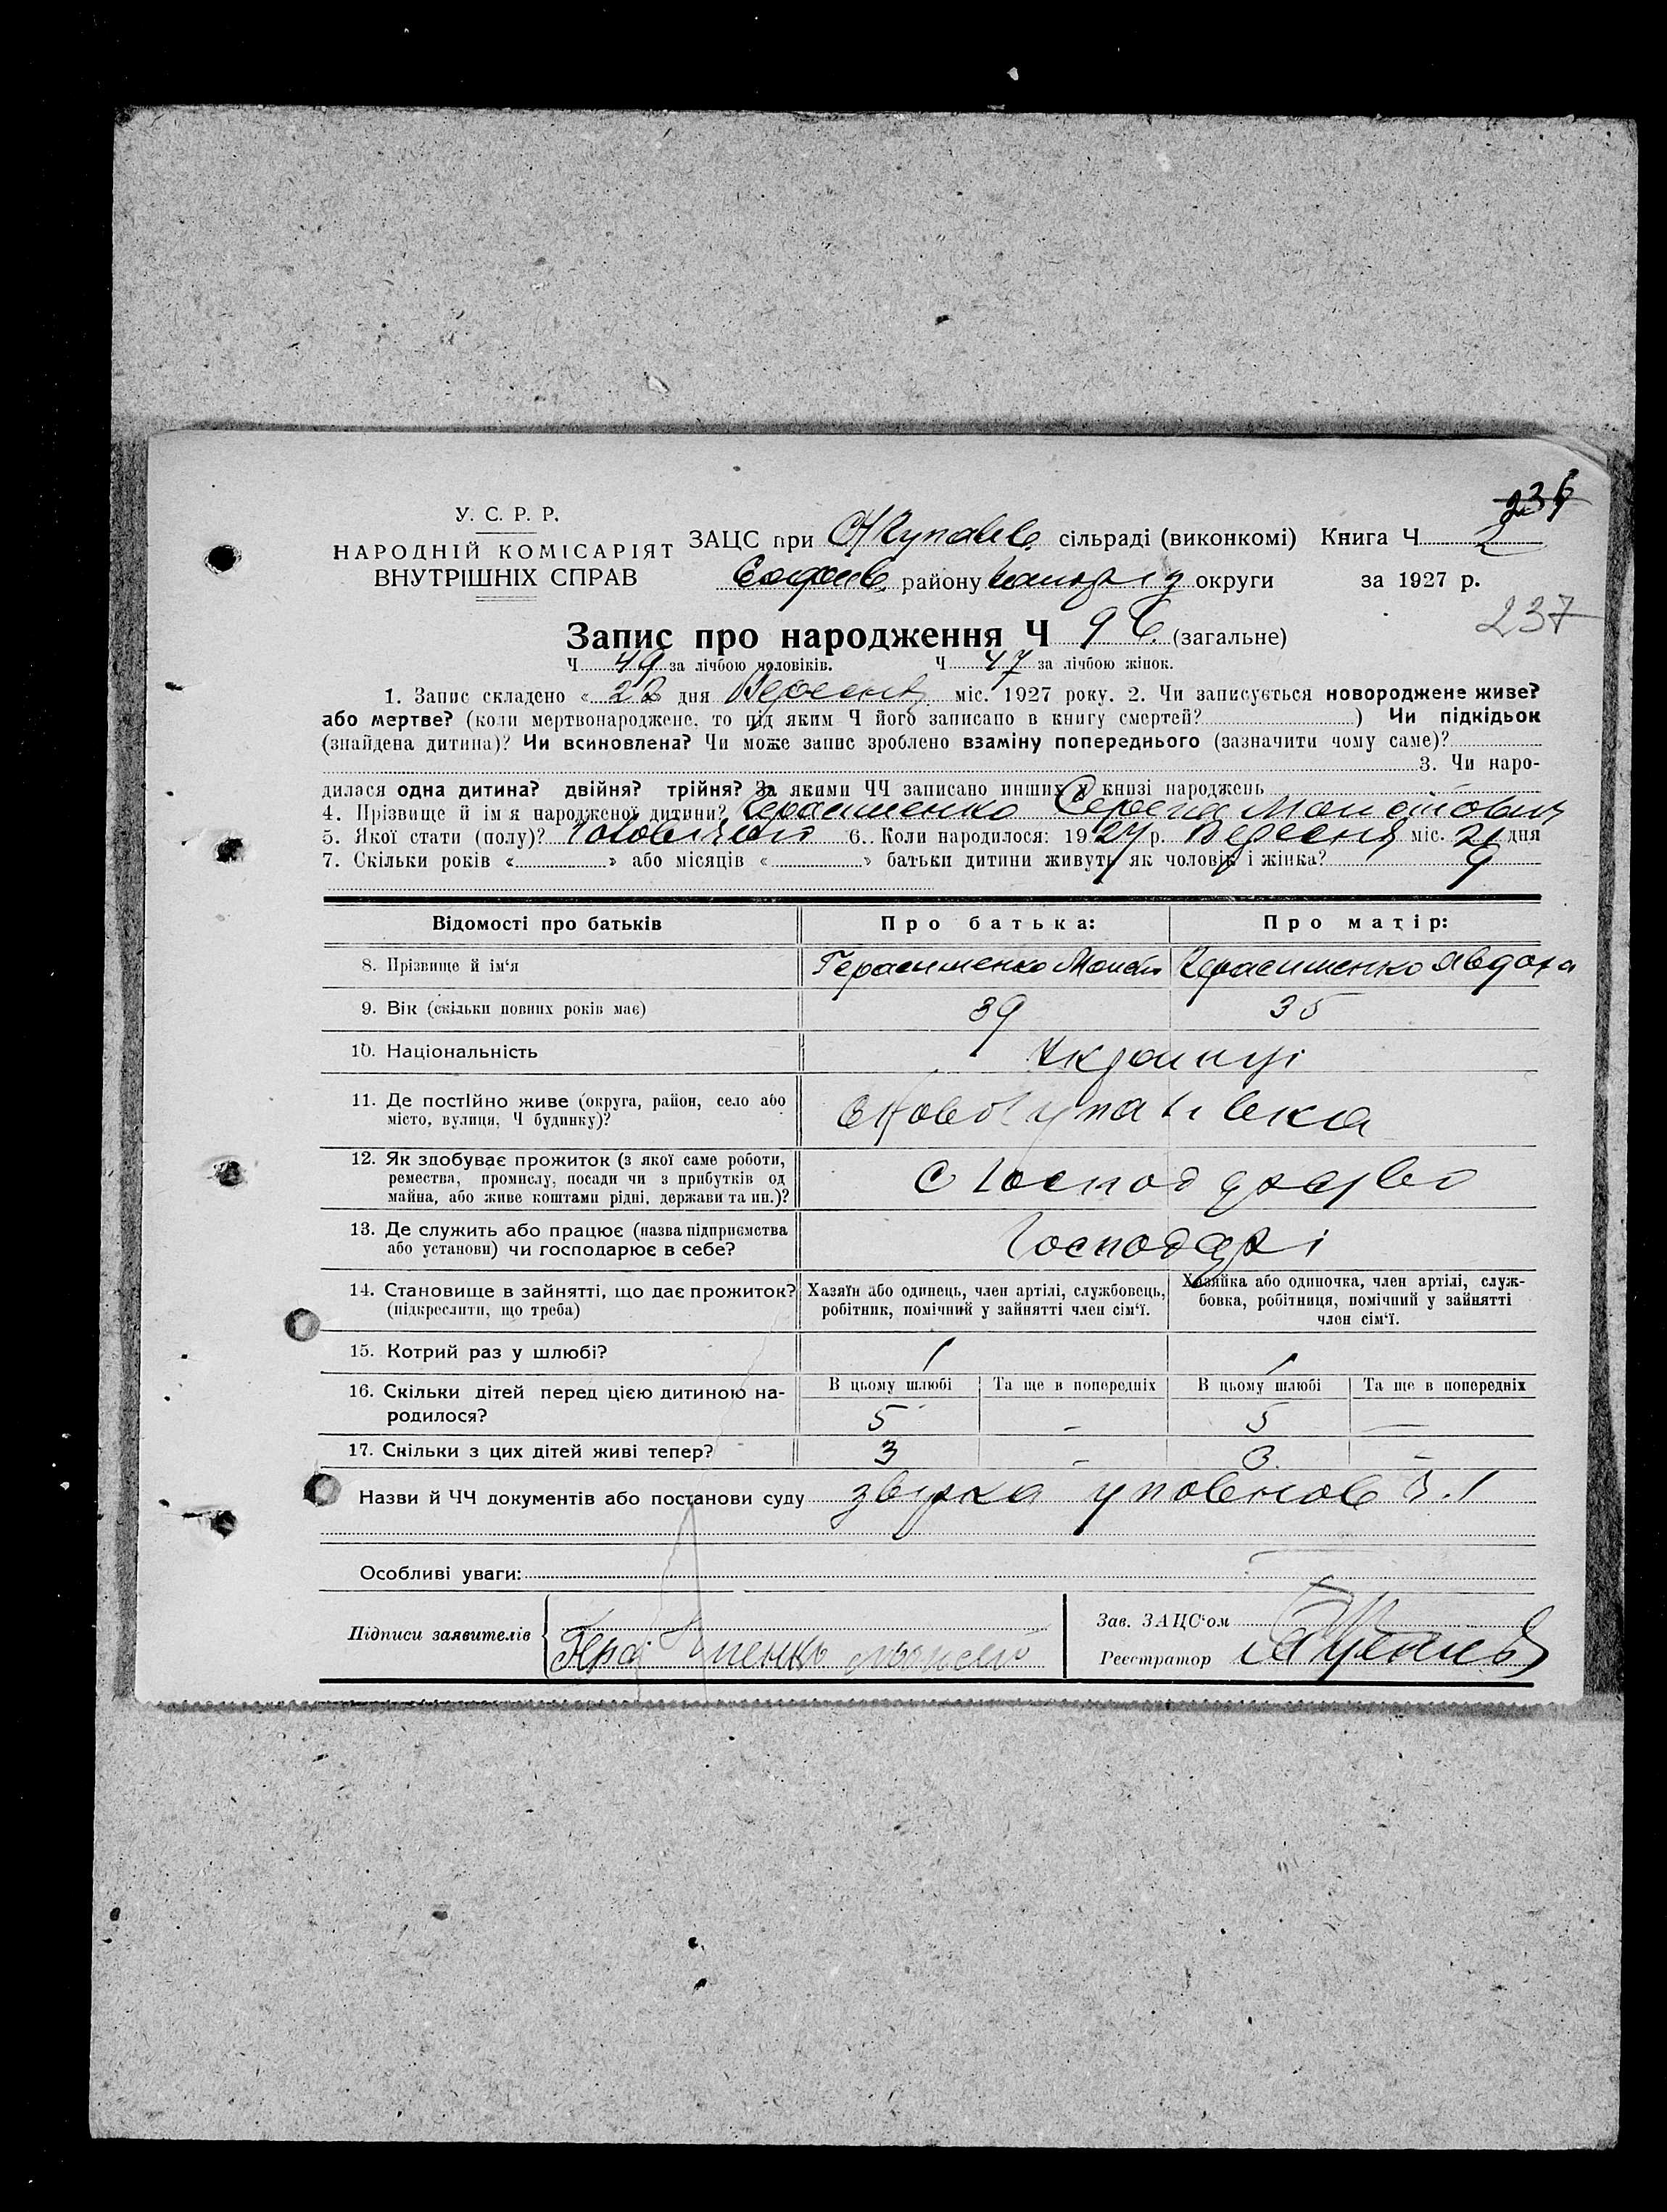 237
У. С. Р. Р.
НАРОДНІЙ КОМІСАРІЯТ
ВНУТРІШНІХ СПРАВ
ЗАЦС при сільраді (виконкомі) Книга Ч 2
Софіїв. району округи за 1927 р.
237
Запис про народження Ч 96 (загальне)
Ч 49 за лічбою чоловіків. Ч 47 за лічбою жінок.
1. Запис складено « дня Вересня міс. 1927 року. 2. Чи записується новороджене живе?
або мертве? (коли мертвонароджене, то під яким Ч його записано в книгу смертей? ) Чи підкідьок
(знайдена дитина)? Чи всиновлена? Чи може запис зроблено взаміну попереднього (зазначити чому саме)?
3. Чи наро-
дилася одна дитина? двійня? трійня? За якими ЧЧ записано инших у книзі народжень
4. Прізвище й ім'я народженої дитини? Герасименко
5. Якої стати (полу)? 6. Коли народилося: 1927 р. Вересня міс. 21 дня
7. Скільки років « » або місяців « » батьки дитини живуть як чоловік і жінка? 9
Відомості про батьків Про батька: Про матір:
8. Прізвище й ім'я Герасименко Герасименко Явдоха
9. Вік (скільки повних років має) 39 35
10. Національність Українці
11. Де постійно живе (округа, район, село або
місто, вулиця, Ч будинку)?
12. Як здобуває прожиток (з якої саме роботи,
ремества, промислу, посади чи з прибутків од
майна, або живе коштами рідні, держави та ин.)?
13. Де служить або працює (назва підприємства
або установи) чи господарює в себе? Господарі
14. Становище в зайнятті, що дає прожиток?
(підкреслити, що треба)
Хазяїн або одинець, член артілі, службовець,
робітник, помічний у зайнятті член сім'ї.
Хазяйка або одиночка, член артілі, служ-
бовка, робітниця, помічний у зайнятті
член сім'ї.
15. Котрий раз у шлюбі? 1 1
16. Скільки дітей перед цією дитиною на-
родилося?
В цьому шлюбі Та ще в попередніх В цьому шлюбі Та ще в попередніх
5 - 5 -
17. Скільки з цих дітей живі тепер? 3 - 3 -
Назви й ЧЧ документів або постанови суду
Особливі уваги:
Підписи заявителів
Зав. ЗАЦС'ом
Реєстратор